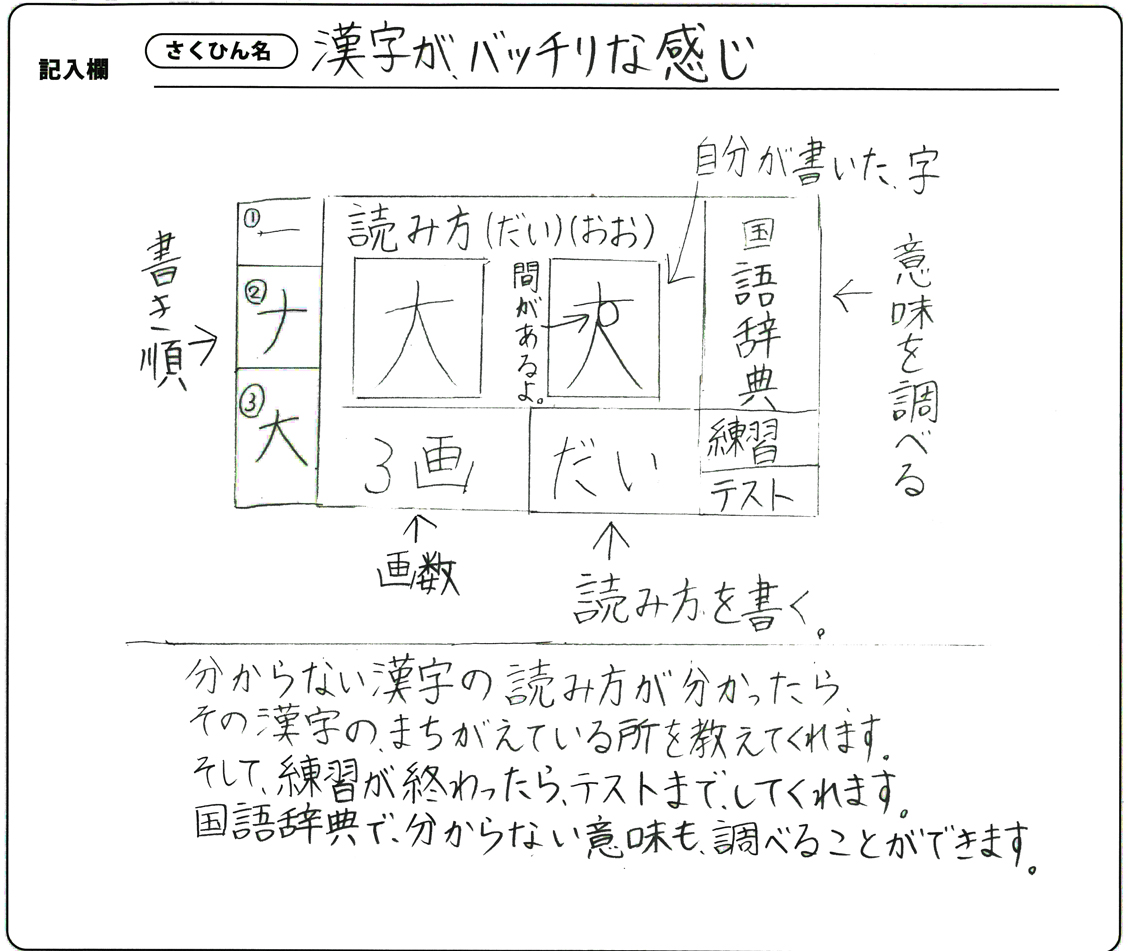 記入欄
さくひん名
漢字が、バッチリな感じ
自分が書いた、字
書き順
①一
②ナ
③大
読み方(だい)(おお)
大
間があるよ。
大
国語辞典
意味を調べる
練習
テスト
3画
だい
画数
読み方を書く。
分からない漢字の読み方が分かったら、
その漢字の、まちがえている所を教えてくれます。
そして、練習が終わったら、テストまで、してくれます。
国語辞典で、分からない意味も、調べることができます。